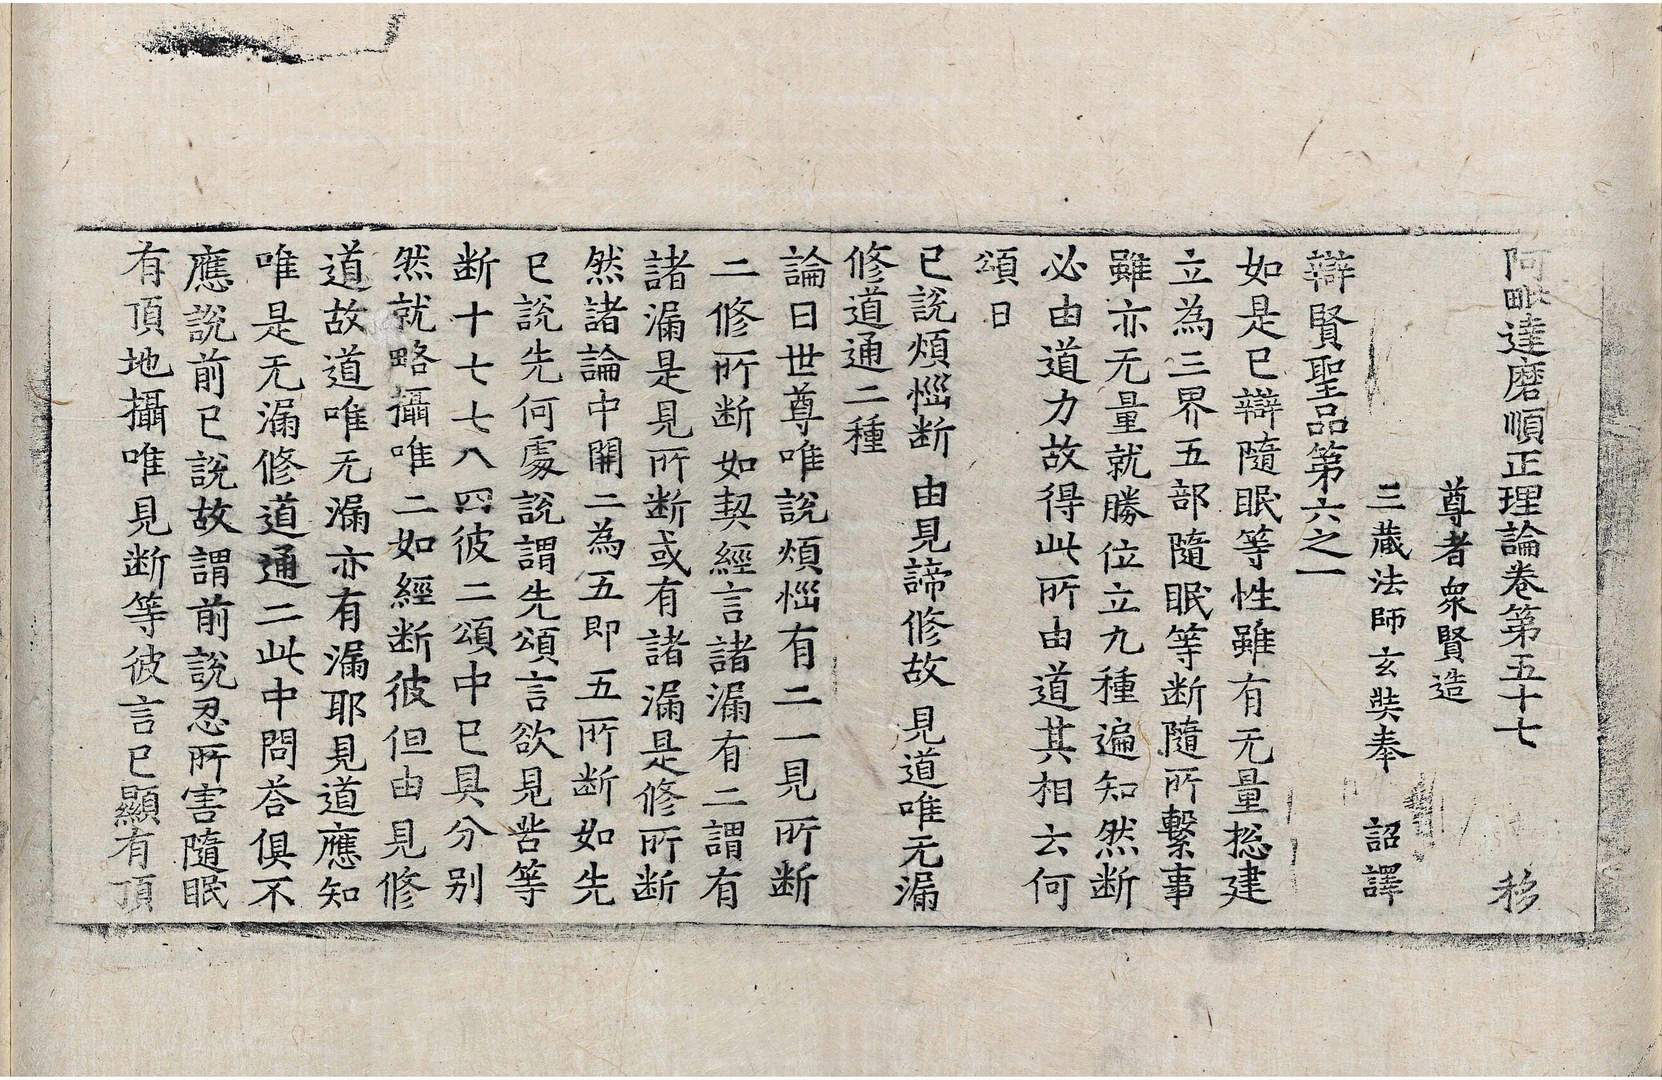 阿毗達磨順正理論卷第五十七　移
尊者衆賢造
三藏法師玄奘奉　詔譯
辯賢聖品第六之一
如是已辯隨眠等性雖有无量捴建
立為三界五部隨眠等断隨所繫事
雖亦无量就勝位立九種遍知然断
必由道力故得此所由道其相云何
頌曰
已說煩惱断　由見諦修故　見道唯无漏
修道通二種
論曰世尊唯說煩惱有二一見所断
二修所断如契經言諸漏有二謂有
諸漏是見所断或有諸漏是修所断
然諸論中開二為五即五所断如先
已說先何處說謂先頌言欲見苦等
断十七七八四彼二頌中已具分別
然就略攝唯二如經断彼但由見修
道故道唯无漏亦有漏耶見道應知
唯是无漏修道通二此中問荅俱不
應說前已說故謂前說忍所害隨眠
有頂地攝唯見断等彼言已顯有頂